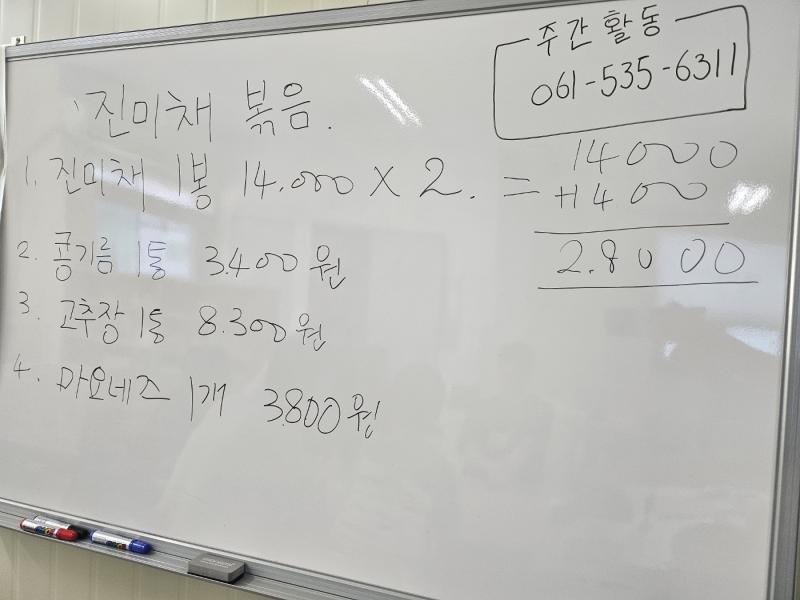 주간활동
061-535-6311
진미채 볶음.
1. 진미채 1봉 14.000 X 2. = 14000
+14000
2.8000
2. 콩기름 1통 3.400원
3. 고추장 1통 8.300원
4. 마요네즈 1개 3.800원